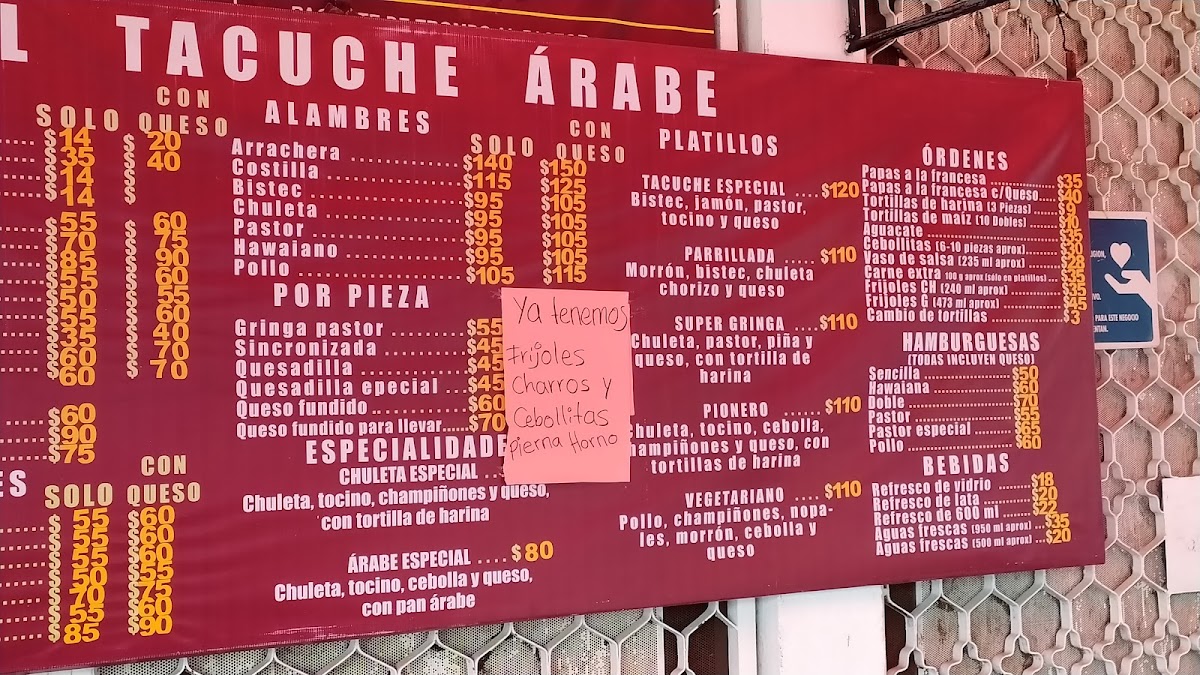 L TACUCHE ÁRABE
SOLO CON QUESO
$14 $20
$35 $40
$14 $
$14 $
$55 $60
$70 $75
$85 $90
$55 $60
$50 $55
$55 $60
$35 $40
$60 $70
$60
$90
$75
ES SOLO CON QUESO
$55 $60
$55 $60
$55 $60
$50 $55
$70 $75
$55 $60
$85 $90
ALAMBRES SOLO CON QUESO
Arrachera $140 $150
Costilla $115 $125
Bistec $95 $105
Chuleta $95 $105
Pastor $95 $105
Hawaiano $95 $105
Pollo $105 $115
POR PIEZA
Gringa pastor $55
Sincronizada $45
Quesadilla $45
Quesadilla epecial $45
Queso fundido $60
Queso fundido para llevar $70
ESPECIALIDADE
CHULETA ESPECIAL
Chuleta, tocino, champiñones y queso,
con tortilla de harina
ÁRABE ESPECIAL $80
Chuleta, tocino, cebolla y queso,
con pan árabe
Ya tenemos
Frijoles
Charros y
Cebollitas
pierna Horno
PLATILLOS
TACUCHE ESPECIAL $120
Bistec, jamón, pastor,
tocino y queso
PARRILLADA $110
Morrón, bistec, chuleta
chorizo y queso
SUPER GRINGA $110
Chuleta, pastor, piña y
queso, con tortilla de
harina
PIONERO $110
huleta, tocino, cebolla,
hampiñones y queso, con
tortillas de harina
VEGETARIANO $110
Pollo, champiñones, nopa-
les, morrón, cebolla y
queso
ÓRDENES
Papas a la francesa $35
Papas a la francesa c/Queso $40
Tortillas de harina (3 Piezas) $9
Tortillas de maíz (10 Dobles) $10
Aguacate $35
Cebollitas (6-10 piezas aprox) $30
Vaso de salsa (235 ml aprox)
Carne extra 100 g aprox (sólo en platillos) $35
Frijoles CH (240 ml aprox) $35
Frijoles G (473 ml aprox) $45
Cambio de tortillas $3
HAMBURGUESAS
(TODAS INCLUYEN QUESO)
Sencilla $50
Hawaiana $60
Doble $70
Pastor $55
Pastor especial $65
Pollo $60
BEBIDAS
Refresco de vidrio $18
Refresco de lata $20
Refresco de 600 ml $22
Aguas frescas (950 ml aprox) $35
Aguas frescas (500 ml aprox) $20
PARA ESTE NEGOCIO